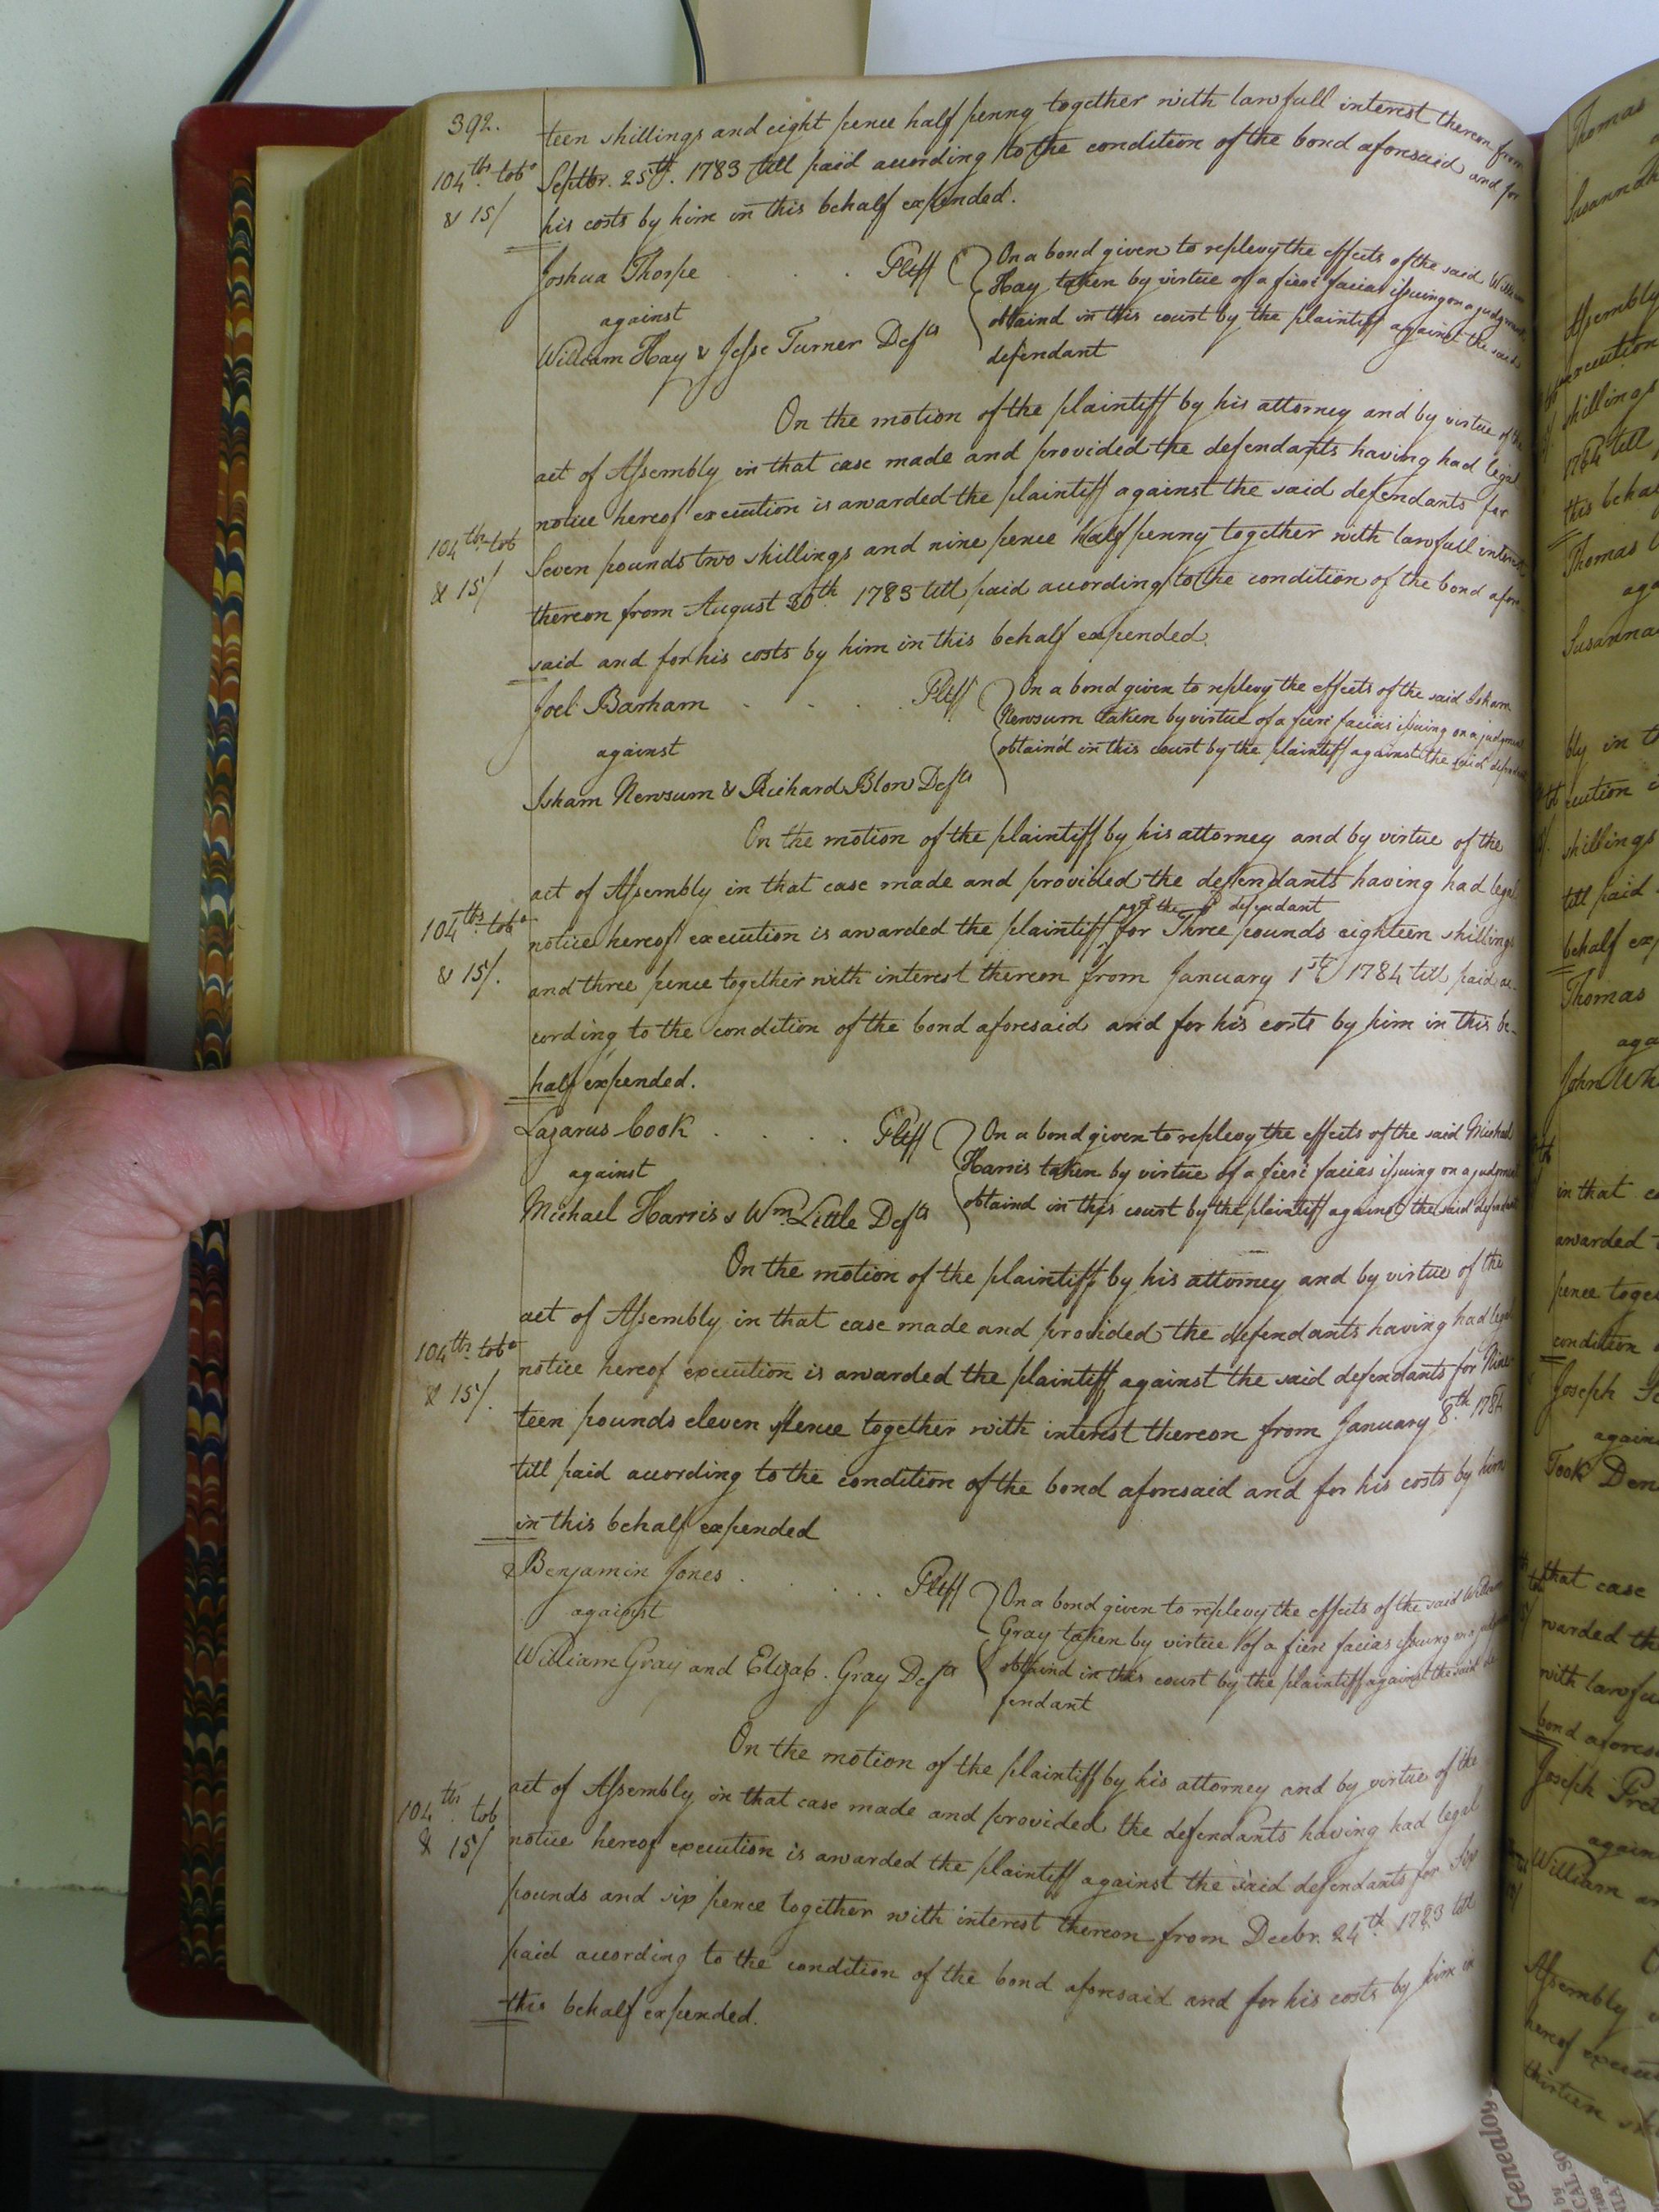 392.
teen shillings and eight pence half penny together with lawfull interest thereon from
104 lbs. tobo
Septbr. 25th. 1783 till paid according to the condition of the bond aforesaid and for
& 15/
his costs by him in this behalf expended.
Joshua Thorpe . . . Pltff
against
William Hay & Jesse Turner Defts
On a bond given to replevy the effects of the said William
Hay taken by virtue of a fieri facias issuing on a judgment
obtaind in this court by the plaintiff against the said
defendant
On the motion of the plaintiff by his attorney and by virtue of the
act of Assembly in that case made and provided the defendants having had legal
notice hereof execution is awarded the plaintiff against the said defendants for
104 lbs. tob
Seven pounds two shillings and nine pence half penny together with lawfull interest
& 15/
thereon from August 30th 1783 till paid according to the condition of the bond afore
said and for his costs by him in this behalf expended.
Joel Barham . . . . Pltff
against
Isham Newsum & Richard Blow Defts
On a bond given to replevy the effects of the said Isham
Newsum taken by virtue of a fieri facias issuing on a judgment
obtain'd in this court by the plaintiff against the said defendant
On the motion of the plaintiff by his attorney and by virtue of the
act of Assembly in that case made and provided the defendants having had legal
agst the sd defendant
104 lbs. tobo
notice hereof execution is awarded the plaintiff for Three pounds eighteen shillings
& 15/.
and three pence together with interest thereon from January 1st 1784 till paid ac-
cording to the condition of the bond aforesaid and for his costs by him in this be-
half expended.
Lazarus Cook . . . . Pltff
against
Michael Harris & Wm. Little Defts
On a bond given to replevy the effects of the said Michael
Harris taken by virtue of a fieri facias issuing on a judgment
obtaind in this court by the plaintiff against the said defendant
On the motion of the plaintiff by his attorney and by virtue of the
act of Assembly in that case made and provided the defendants having had legal
104 lbs. tobo
notice hereof execution is awarded the plaintiff against the said defendants for Nine
& 15/.
teen pounds eleven pence together with interest thereon from January 8th. 1784
till paid according to the condition of the bond aforesaid and for his costs by him
in this behalf expended
Benjamin Jones . . . . Pltff
against
William Gray and Elizab. Gray Defts
On a bond given to replevy the effects of the said William
Gray taken by virtue of a fieri facias issuing on a judgment
obtaind in this court by the plaintiff against the said de
fendant
On the motion of the plaintiff by his attorney and by virtue of the
act of Assembly in that case made and provided the defendants having had legal
104 lbs. tob
notice hereof execution is awarded the plaintiff against the said defendants for Six
& 15/
pounds and six pence together with interest thereon from Decbr. 24th. 1783 till
paid according to the condition of the bond aforesaid and for his costs by him in
this behalf expended.
Thomas
Susannah
Assembly
execution
shillings
1784 till
this beha
Thomas
aga
Susanna
bly in th
cution i
shillings
till paid
behalf ex
Thomas
aga
John Wh
in that c
awarded
pence toge
condition
Joseph
again
Took Den
that case
warded the
with lawfu
bond afores
Joseph Pret
again
William an
Assembly
hereof execu
thirteen
Genealog